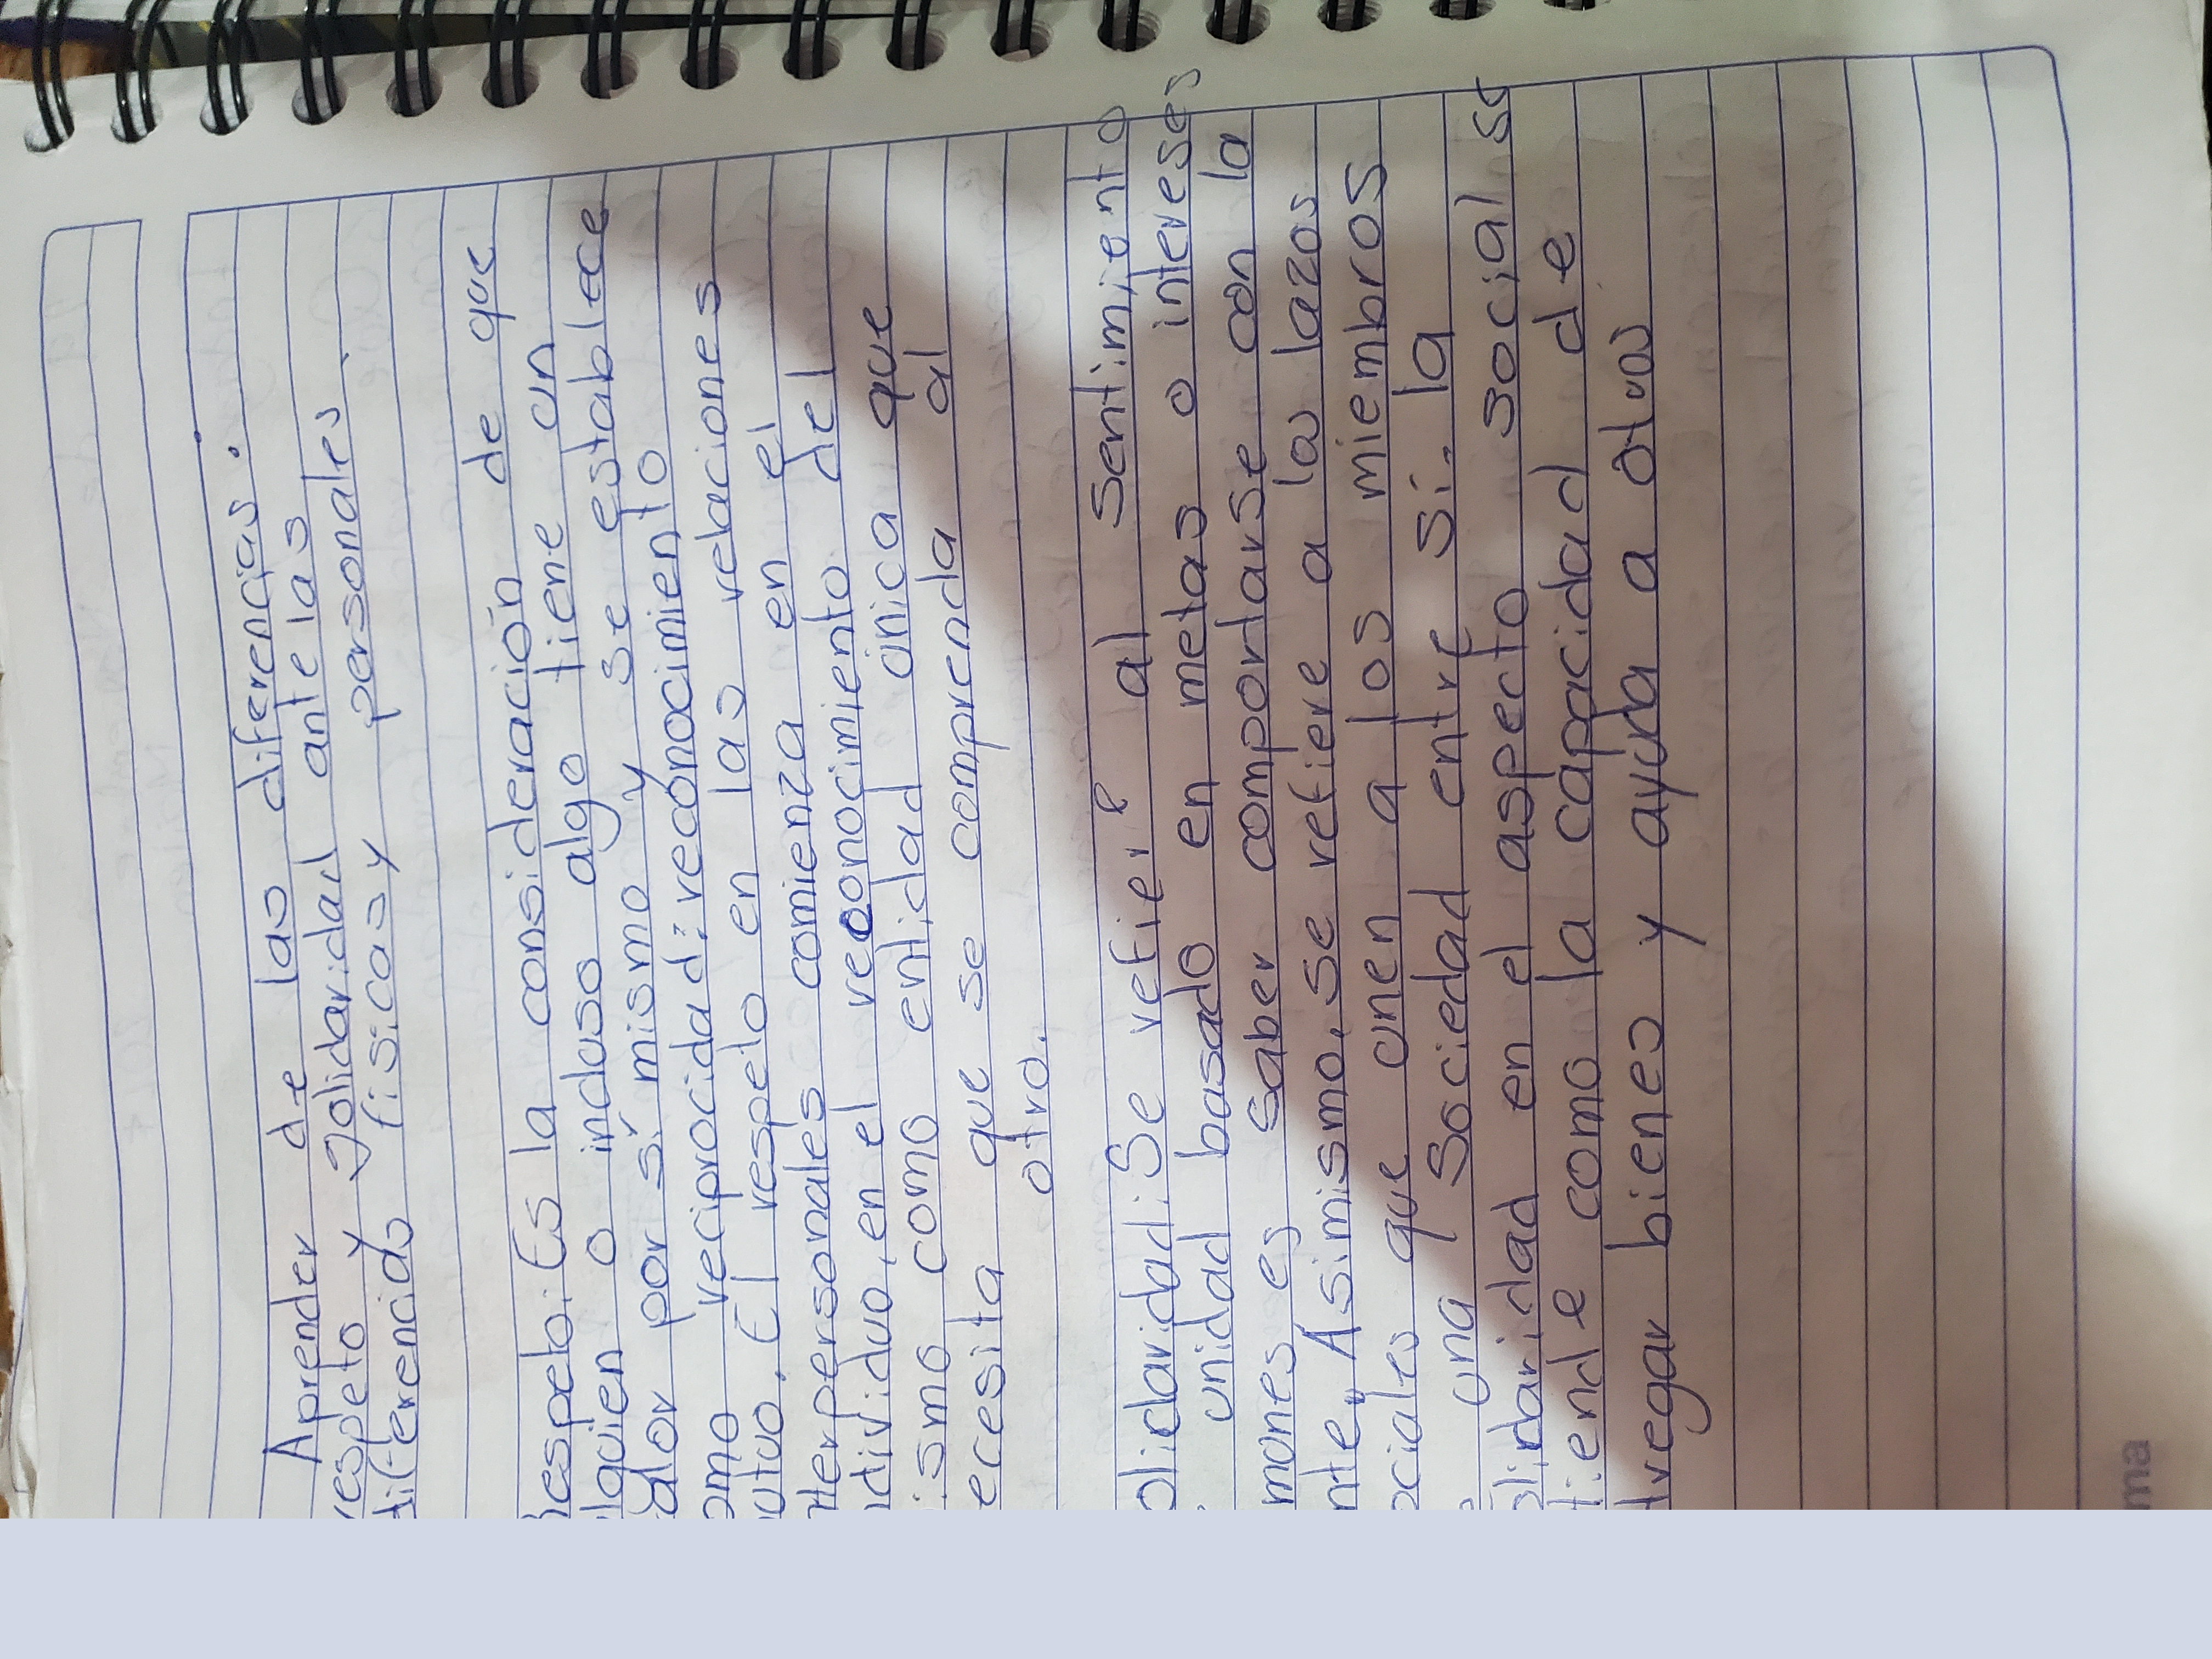 Aprender de las diferencias.
respeto y Solidaridad ante las
diferencias fisicas y personales.
Respeto: Es la consideración de que
lguien o incluso algo tiene un
alor por sí mismo y se establece
omo reciprocidad: reconocimiento
utuo. El respeto en las relaciones
nterpersonales comienza en el
ndividuo, en el reconocimiento del
ismo como entidad única que
ecesita que se comprenda al
otro.
olidaridad: Se refiere al sentimiento
unidad basado en metas o intereses
munes es saber comportarse con la
nte. Asimismo, se refiere a los lazos
ociales que unen a los miembros
una sociedad entre sí. la
olidaridad en el aspecto social se
tiende como la capacidad de
tregar bienes y ayuda a otros
ma